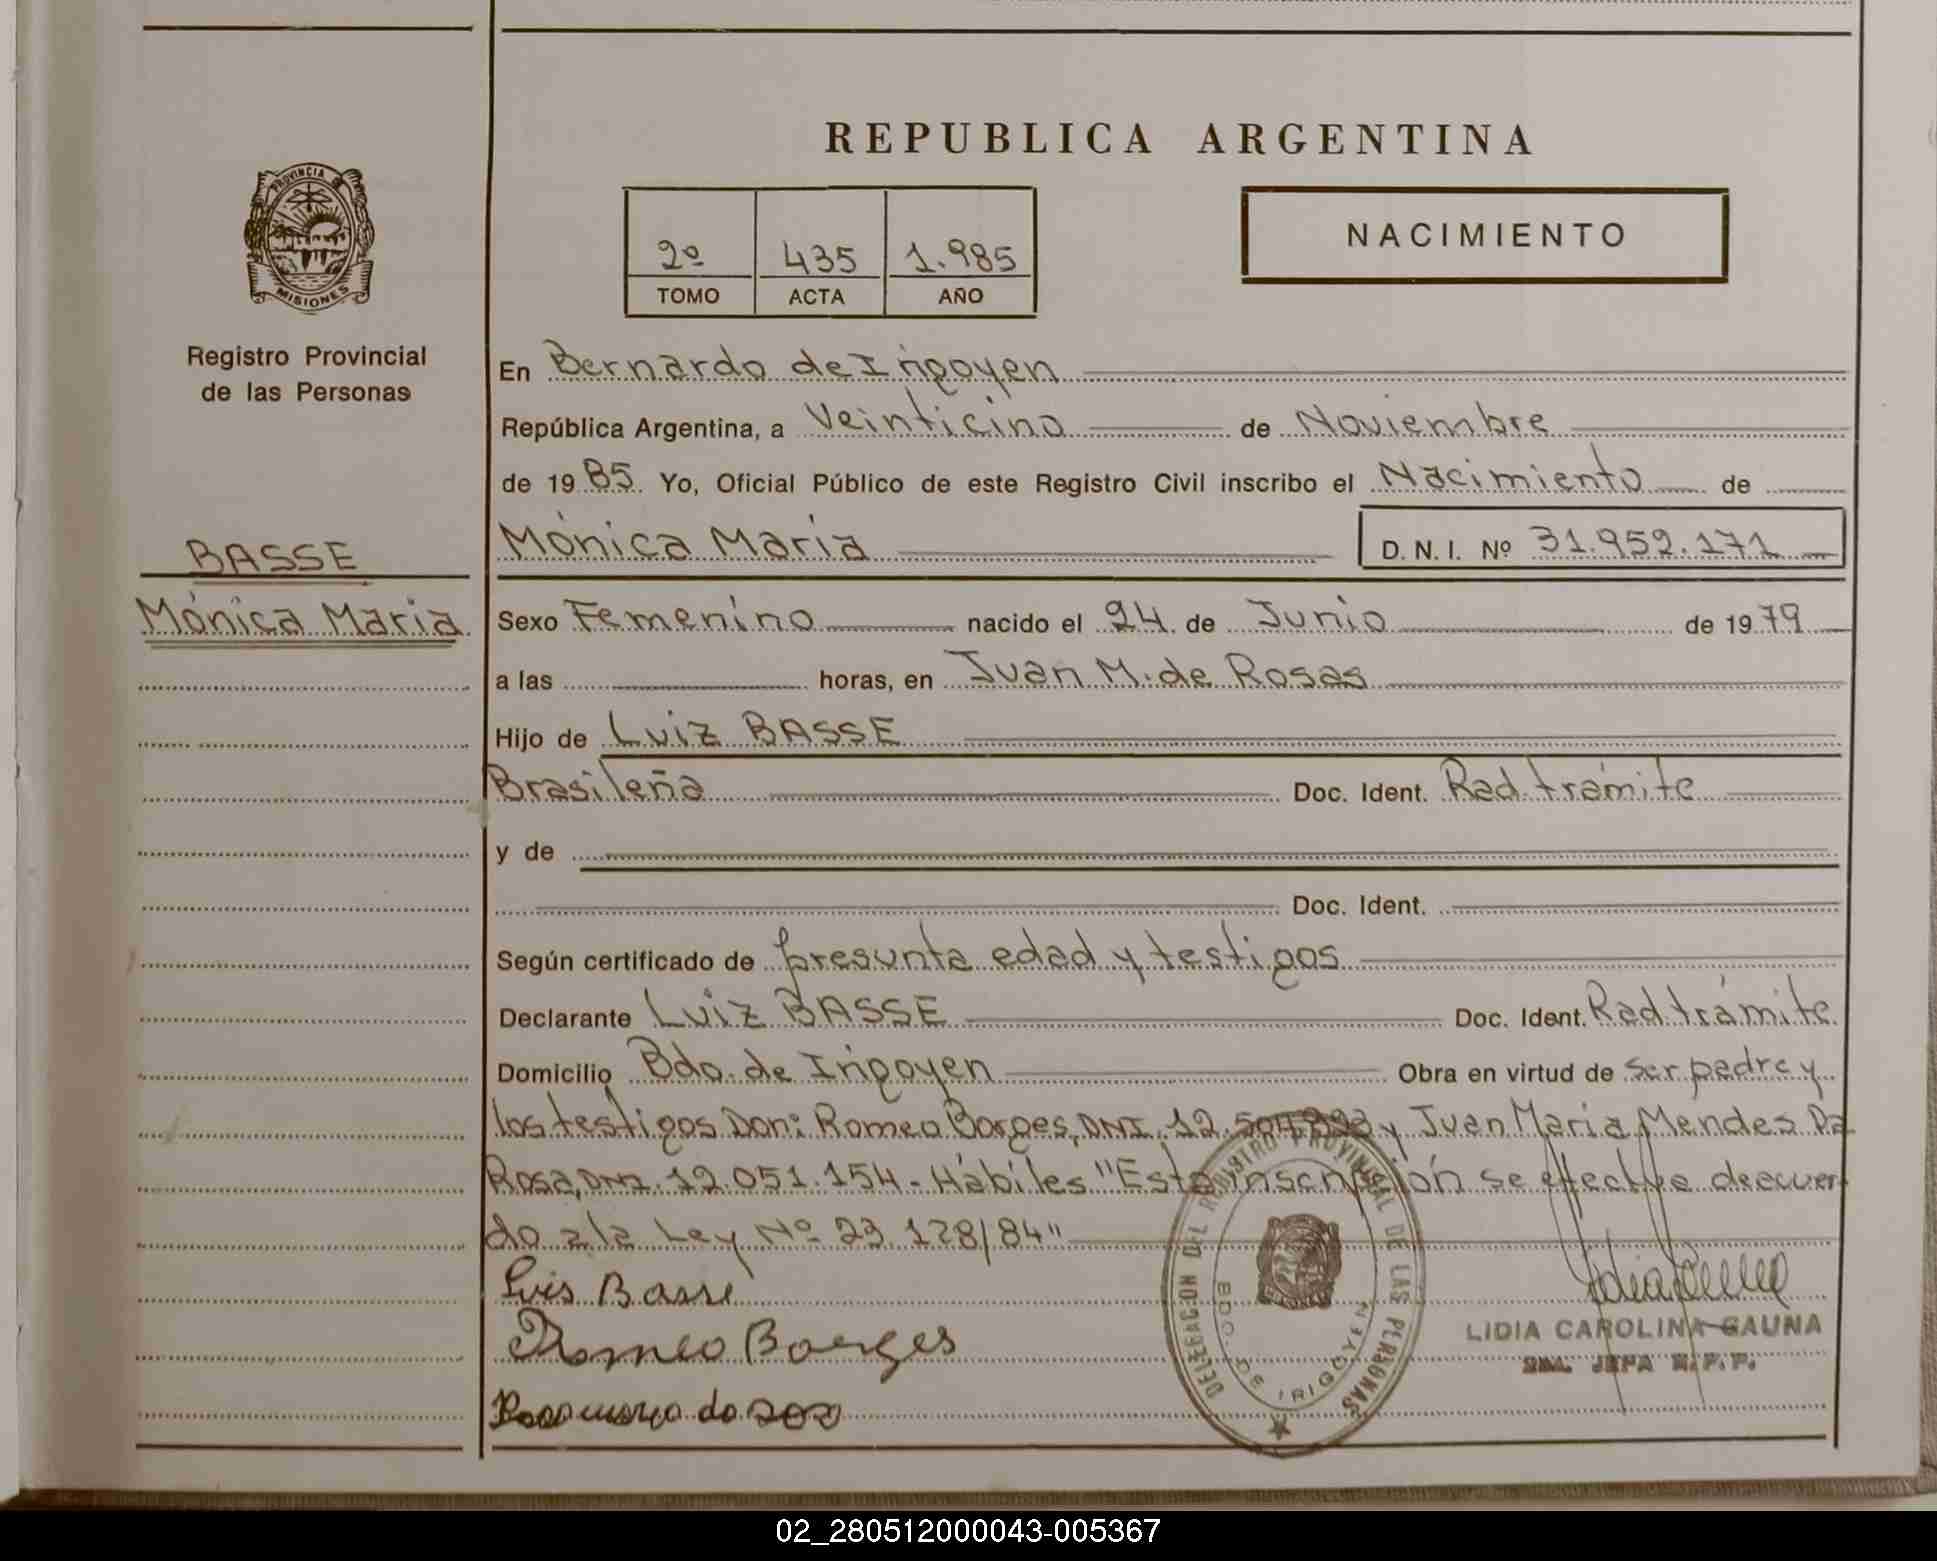 REPUBLICA ARGENTINA
PROVINCIA DE
MISIONES
Registro Provincial
de las Personas
2º 435 1.985
TOMO ACTA AÑO
NACIMIENTO
BASSE
Mónica Maria
En Bernardo de Irigoyen
República Argentina, a Veinticino de Noviembre
de 1985 Yo, Oficial Público de este Registro Civil inscribo el Nacimiento de
Mónica Maria D. N. I. Nº 31.952.171
Sexo Femenino nacido el 24 de Junio de 1979
a las horas, en Juan M. de Rosas
Hijo de Luiz BASSE
Brasileña Doc. Ident. Rad. trámite
y de
Doc. Ident.
Según certificado de presunta edad y testigos
Declarante Luiz BASSE Doc. Ident. Rad. trámite
Domicilio Bdo. de Irigoyen Obra en virtud de ser padre y
los testigos Don: Romeo Borges, DNI. 12. y Juan Maria Mendes Da
Rosa, DNI. 12.051.154 - Hábiles "Esta inscripción se efectua deacuer
do a la Ley Nº 23.128/84"
Luis Basse
Romeo Borges
DELEGACION DEL REGISTRO PROVINCIAL DE LAS PERSONAS
BDO. DE IRIGOYEN
LIDIA CAROLINA GAUNA
JEFA R.P.P.
02_280512000043-005367